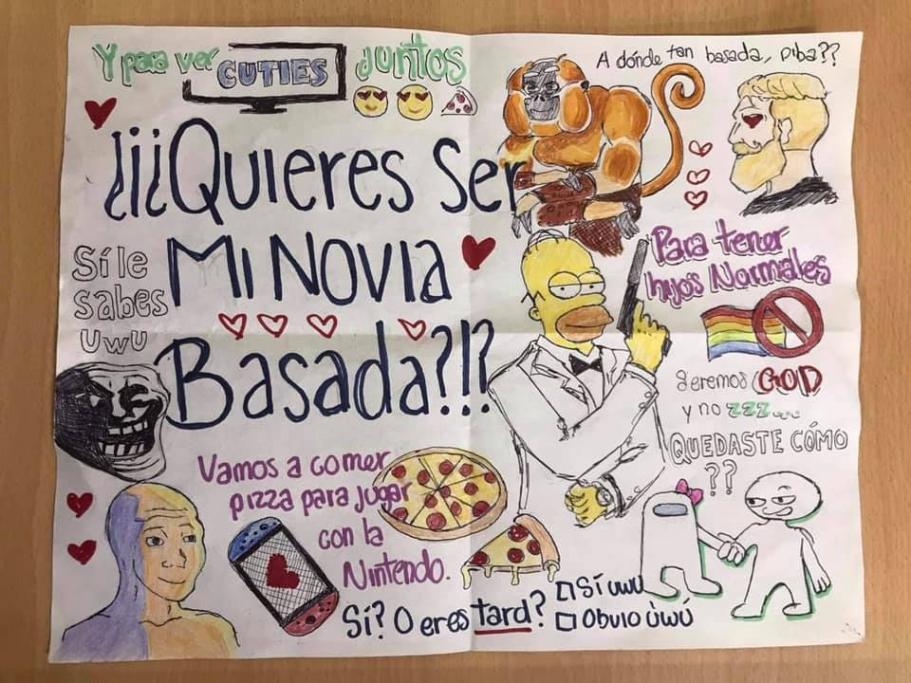 Y para ver CUTIES JUNTOS
¿¡¡¡QUIERES SER
MI NOVIA
BASADA?!!?
Sí le
sabes
UwU
A dónde tan basada, piba??
Para tener
hijos Normales
Seremos GOD
y no zzz...
QUEDASTE CÓMO
??
Vamos a comer
pizza para jugar
con la
Nintendo.
Sí? O eres tard?
□ Sí uwu
□ Obvio ùwú